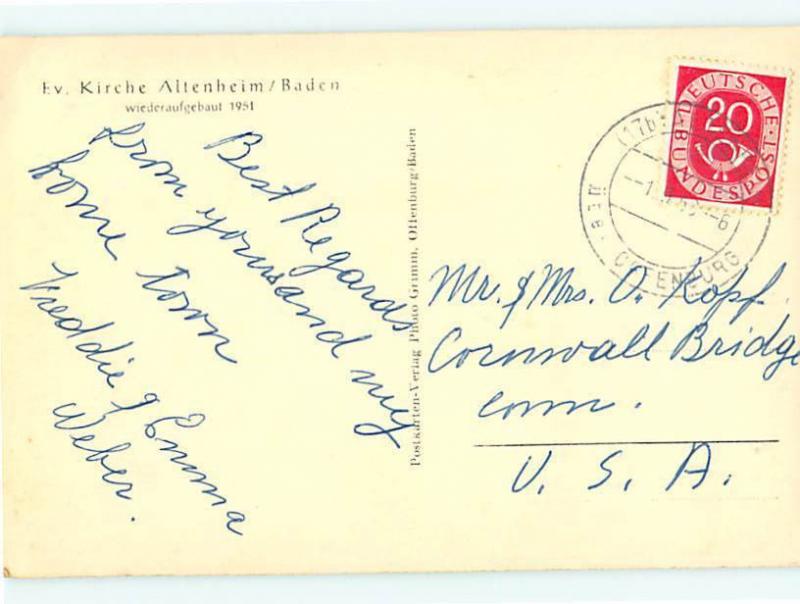 Ev. Kirche Altenheim/Baden
wiederaufgebaut 1951
Best Regards
from yours and my
home town
Freddie & Emma
Weber.
Postkarten-Verlag Photo Grimm, Offenburg/Baden
DEUTSCHE
BUNDESPOST
20
(17b)
OFFENBURG
Mr. & Mrs. O. Kopf.
Cornwall Bridge
conn.
U. S. A.